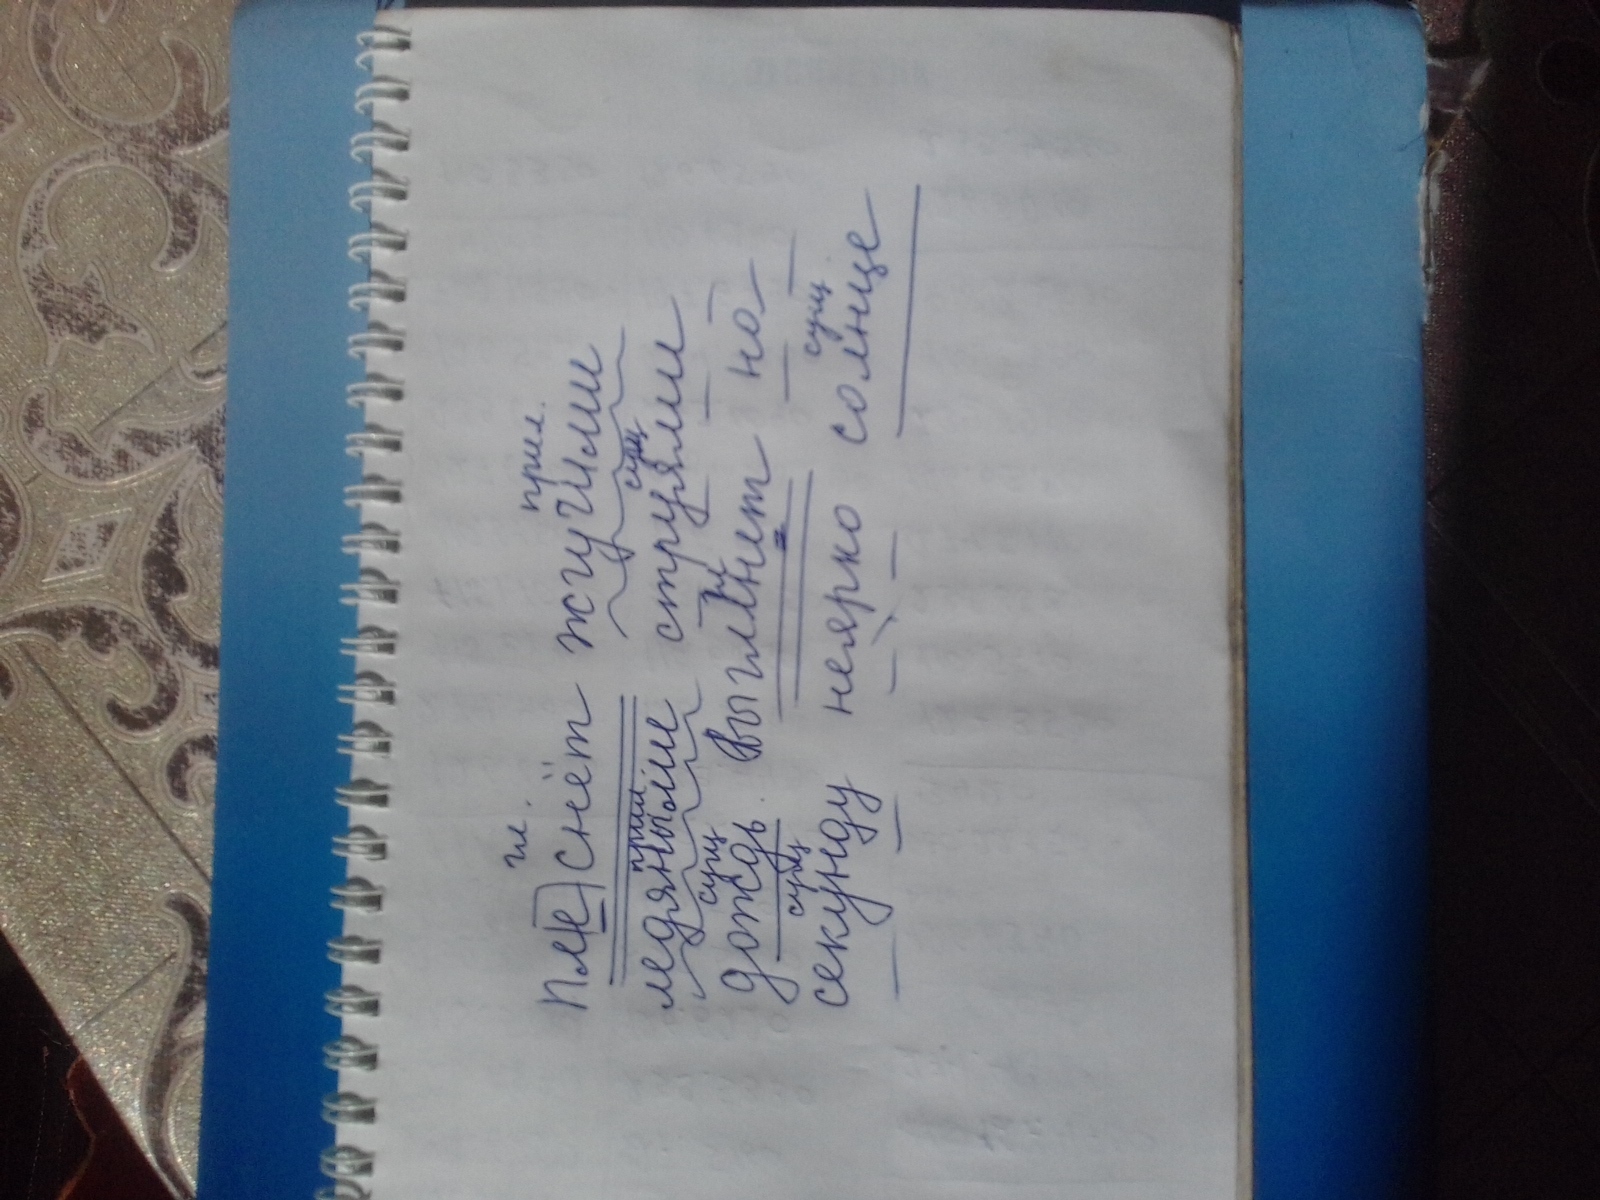 гл. прил.
плеснёт жгучими
прил сущ
ледяными струями
сущ гл
дождь. Выглянет на
сущ сущ
секунду неярко солнце